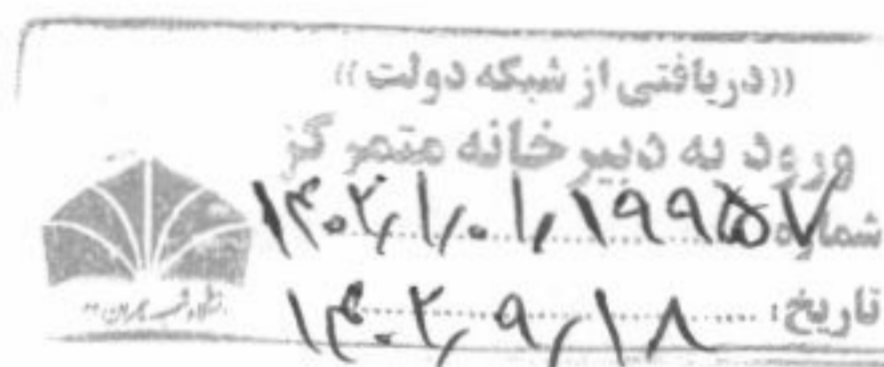 ((دریافتی از شبکه دولت))
ورود به دبیرخانه متمرکز
شماره: ۱۴۰۲,۱,۰۱,۱۹۹۵۷
تاریخ: ۱۴۰۲,۹,۱۸